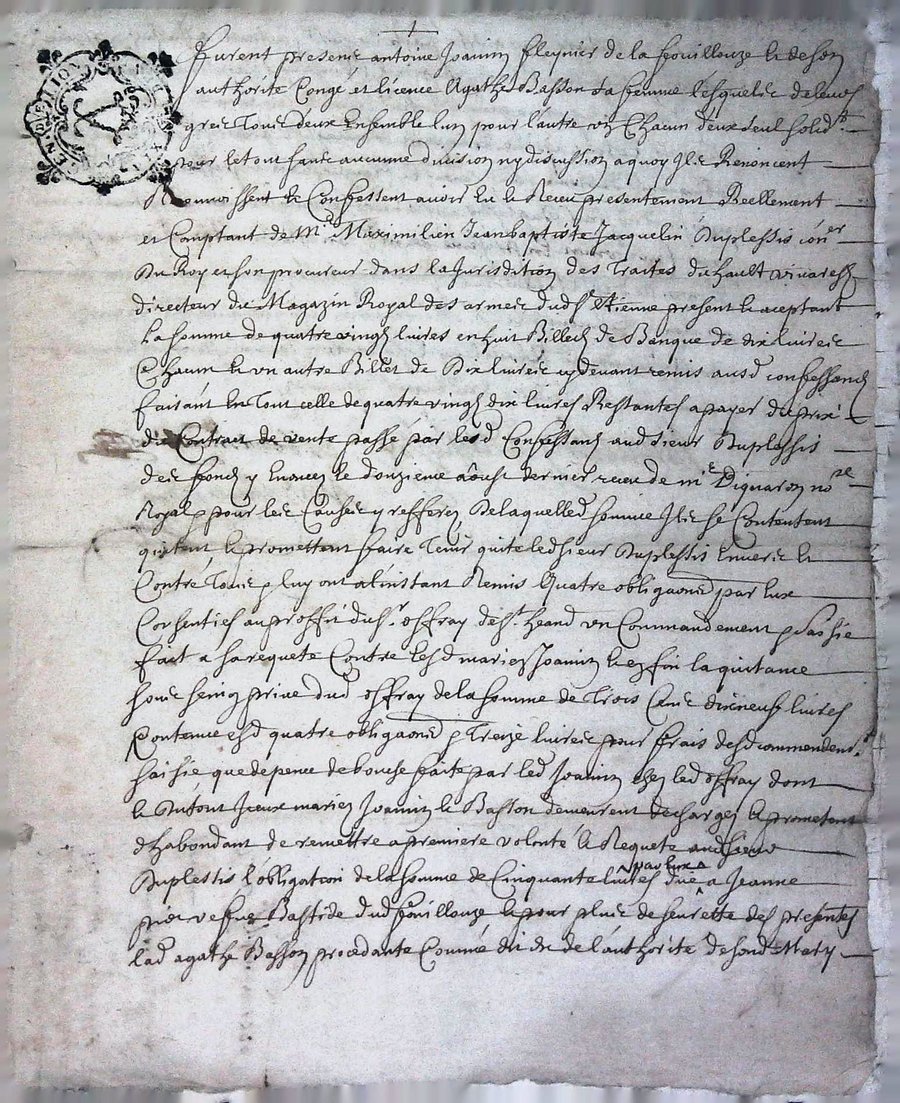 furent presents antoine Joanin fleynier de la feouillouze & de son
authorité Congé et licence Agathe Basson sa femme lesquels de leurs
grés Tous deux Ensemble lun pour l'autre un Chacun deux seul solid.t
pour le tout sans aucunne division ny discussion a quoy Ils Renoncent
Reconnoissent & Confessent avoir Eu & Receu presentement Reellement
et Comptant de M.r Maximilien Jeanbaptiste Jacquelin Duplessis con.er
Du Roy et son procureur dans la Jurisdition des Traites du hault vivarestz
directeur du Magazin Royal des armes du d. St Etienne present & aceptant
La somme de quatre vingts livres en huit Billets de Banque de dix livres
Chacun & un autre Billet de Dix livres cy devant remis ausd confessants
faisant En Tout celle de quatre vingts dix livres Restantes a payer du prix
du Contract de vente passé par lesd Confessants aud sieur Duplessis
des fonds y Enoncez le douzieme aoust dernier receu de m.e no.re
Royal p pour les Causes y refferez De laquelled somme Ils se Contentent
quitent & promettent faire Tenir quite led sieur Duplessis Envers &
Contre Tous p luy ont a l'instant Remis Quatre obligaons par Eux
Consenties au proffit du Sr offray de St heand un Commandement p saisie
fait a sa requete Contre lesd mariez Joanin & enfin la quitance
sous seing privé dud offray de la somme de Trois Cents dix neufs livres
Contenue esd quatre obligaons p Treize livres pour frais desd commendem.t
saisie que depence de bouche faite par led Joanin chez led offray dont
& du tout Iceux mariez Joanin & Basson demeurent dechargez & prometent
d'habondant de remettre a premiere volonté & Requete aud sieur
Duplessis l'obligation de la somme de Cinquante livres due par eux a Jeanne
vefve Bastide dud feouillouze & pour plus de seurette des presentes
lad agathe Basson procedante Comme dit est de l'authorité de sond Mary